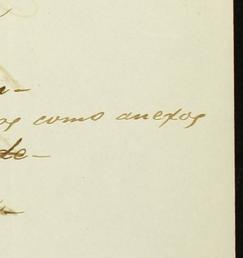 os como anexos
de-